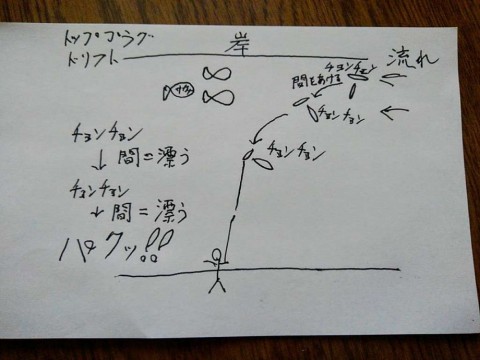 トッププラグ
ドリフト
岸
流れ
チョンチョン
間をあける
チョンチョン
チョンチョン
チョンチョン
↓間=漂う
チョンチョン
↓間=漂う
パクッ!!